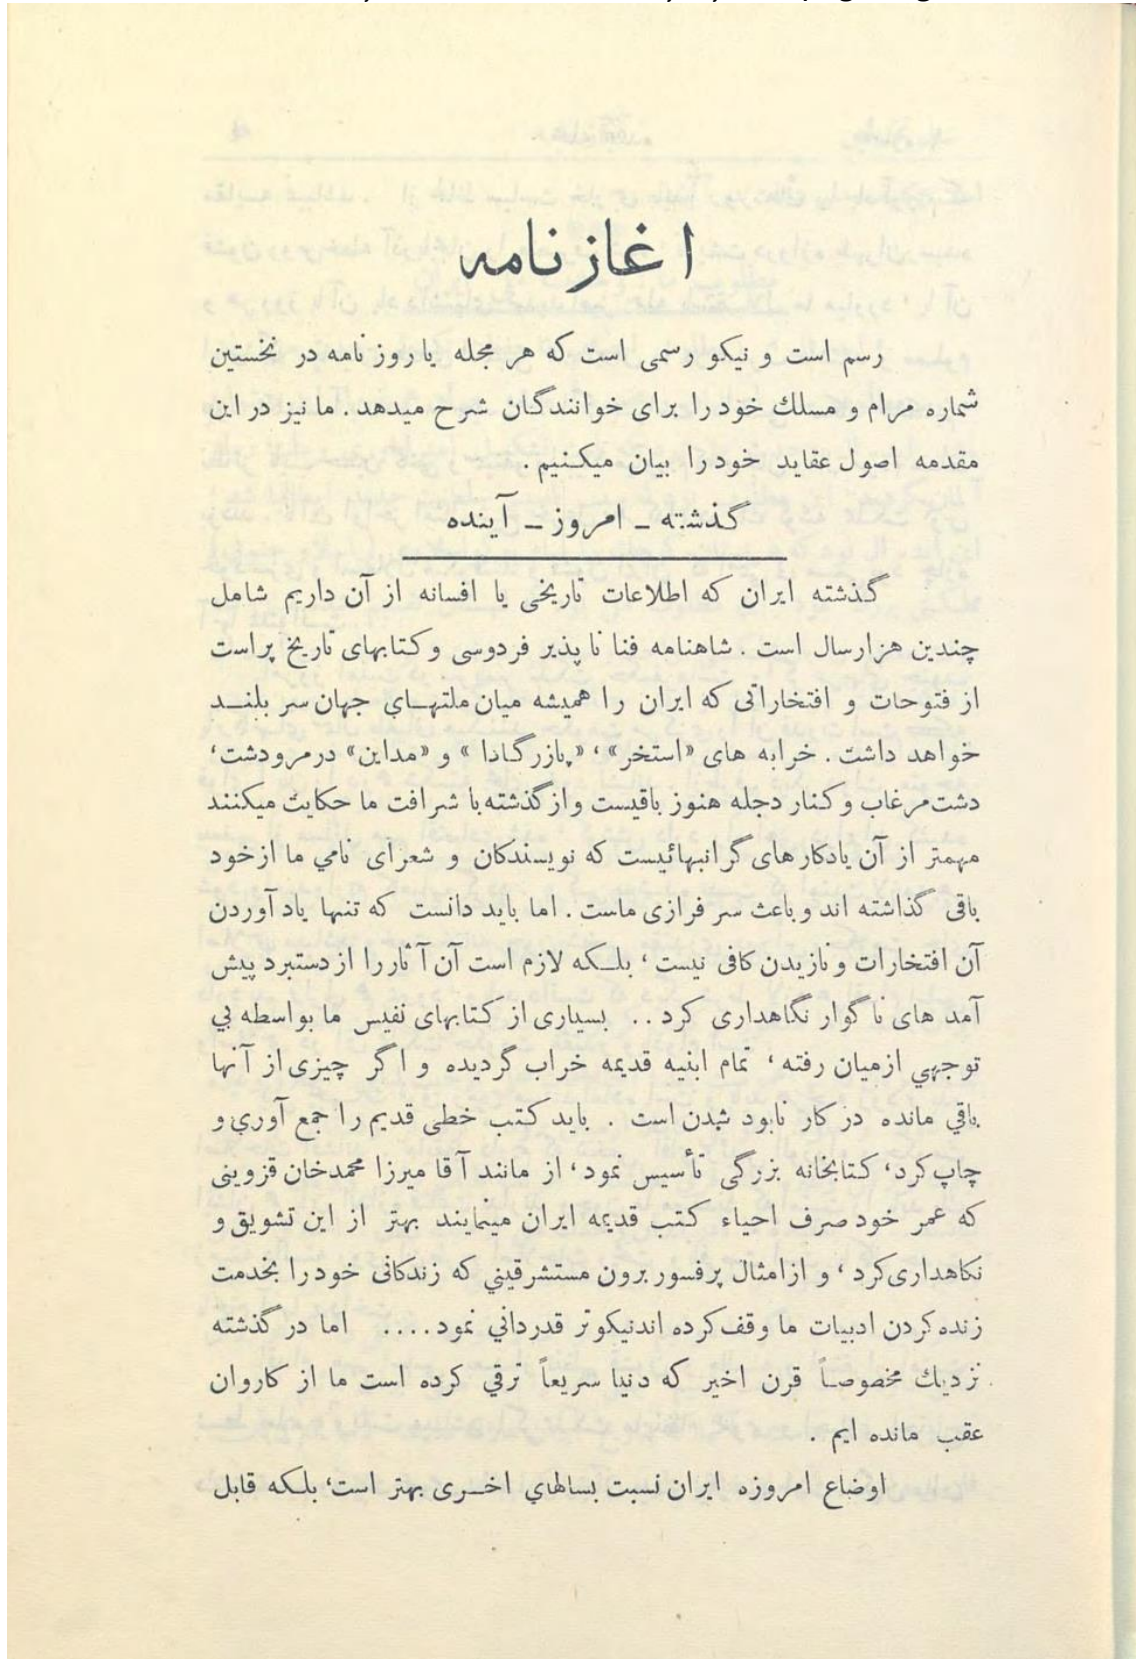 اغاز نامه
رسم است و نیکو رسمی است که هر مجله یا روز نامه در نخستین
شماره مرام و مسلك خود را برای خوانندگان شرح میدهد . ما نیز در این
مقدمه اصول عقاید خود را بیان میکنیم .
گذشته ـ امروز ـ آینده
گذشته ایران که اطلاعات تاریخی یا افسانه از آن داریم شامل
چندین هزار سال است . شاهنامه فنا نا پذیر فردوسی و کتابهای تاریخ پر است
از فتوحات و افتخاراتی که ایران را همیشه میان ملتهای جهان سر بلند
خواهد داشت . خرابه های «استخر» ، «پازرگادا» و «مداین» در مرودشت،
دشت مرغاب و کنار دجله هنوز باقیست و از گذشته با شرافت ما حکایت میکنند
مهمتر از آن یادکار های گرانبهائیست که نویسندکان و شعرای نامي ما از خود
باقی گذاشته اند و باعث سر فرازی ماست . اما باید دانست که تنها یاد آوردن
آن افتخارات و نازیدن کافی نیست ، بلکه لازم است آن آثار را از دستبرد پیش
آمد های نا گوار نگاهداری کرد . . بسیاری از کتابهای نفیس ما بواسطه بي
توجهي از میان رفته ، تمام ابنیه قدیمه خراب گردیده و اگر چیزی از آنها
باقي مانده در کار نابود شدن است . باید کتب خطی قدیم را جمع آوري و
چاپ کرد ، کتابخانه بزرگی تأسیس نمود ، از مانند آقا میرزا محمدخان قزوینی
که عمر خود صرف احیاء کتب قدیمه ایران مینمایند بهتر از این تشویق و
نکاهداری کرد ، و از امثال پرفسور برون مستشرقیني که زندکانی خود را بخدمت
زنده کردن ادبیات ما وقف کرده اند نیکو تر قدرداني نمود . . . . اما در گذشته
نزدیك مخصوصاً قرن اخیر که دنیا سریعاً ترقي کرده است ما از کاروان
عقب مانده ایم .
اوضاع امروزه ایران نسبت بسالهاي اخری بهتر است، بلکه قابل